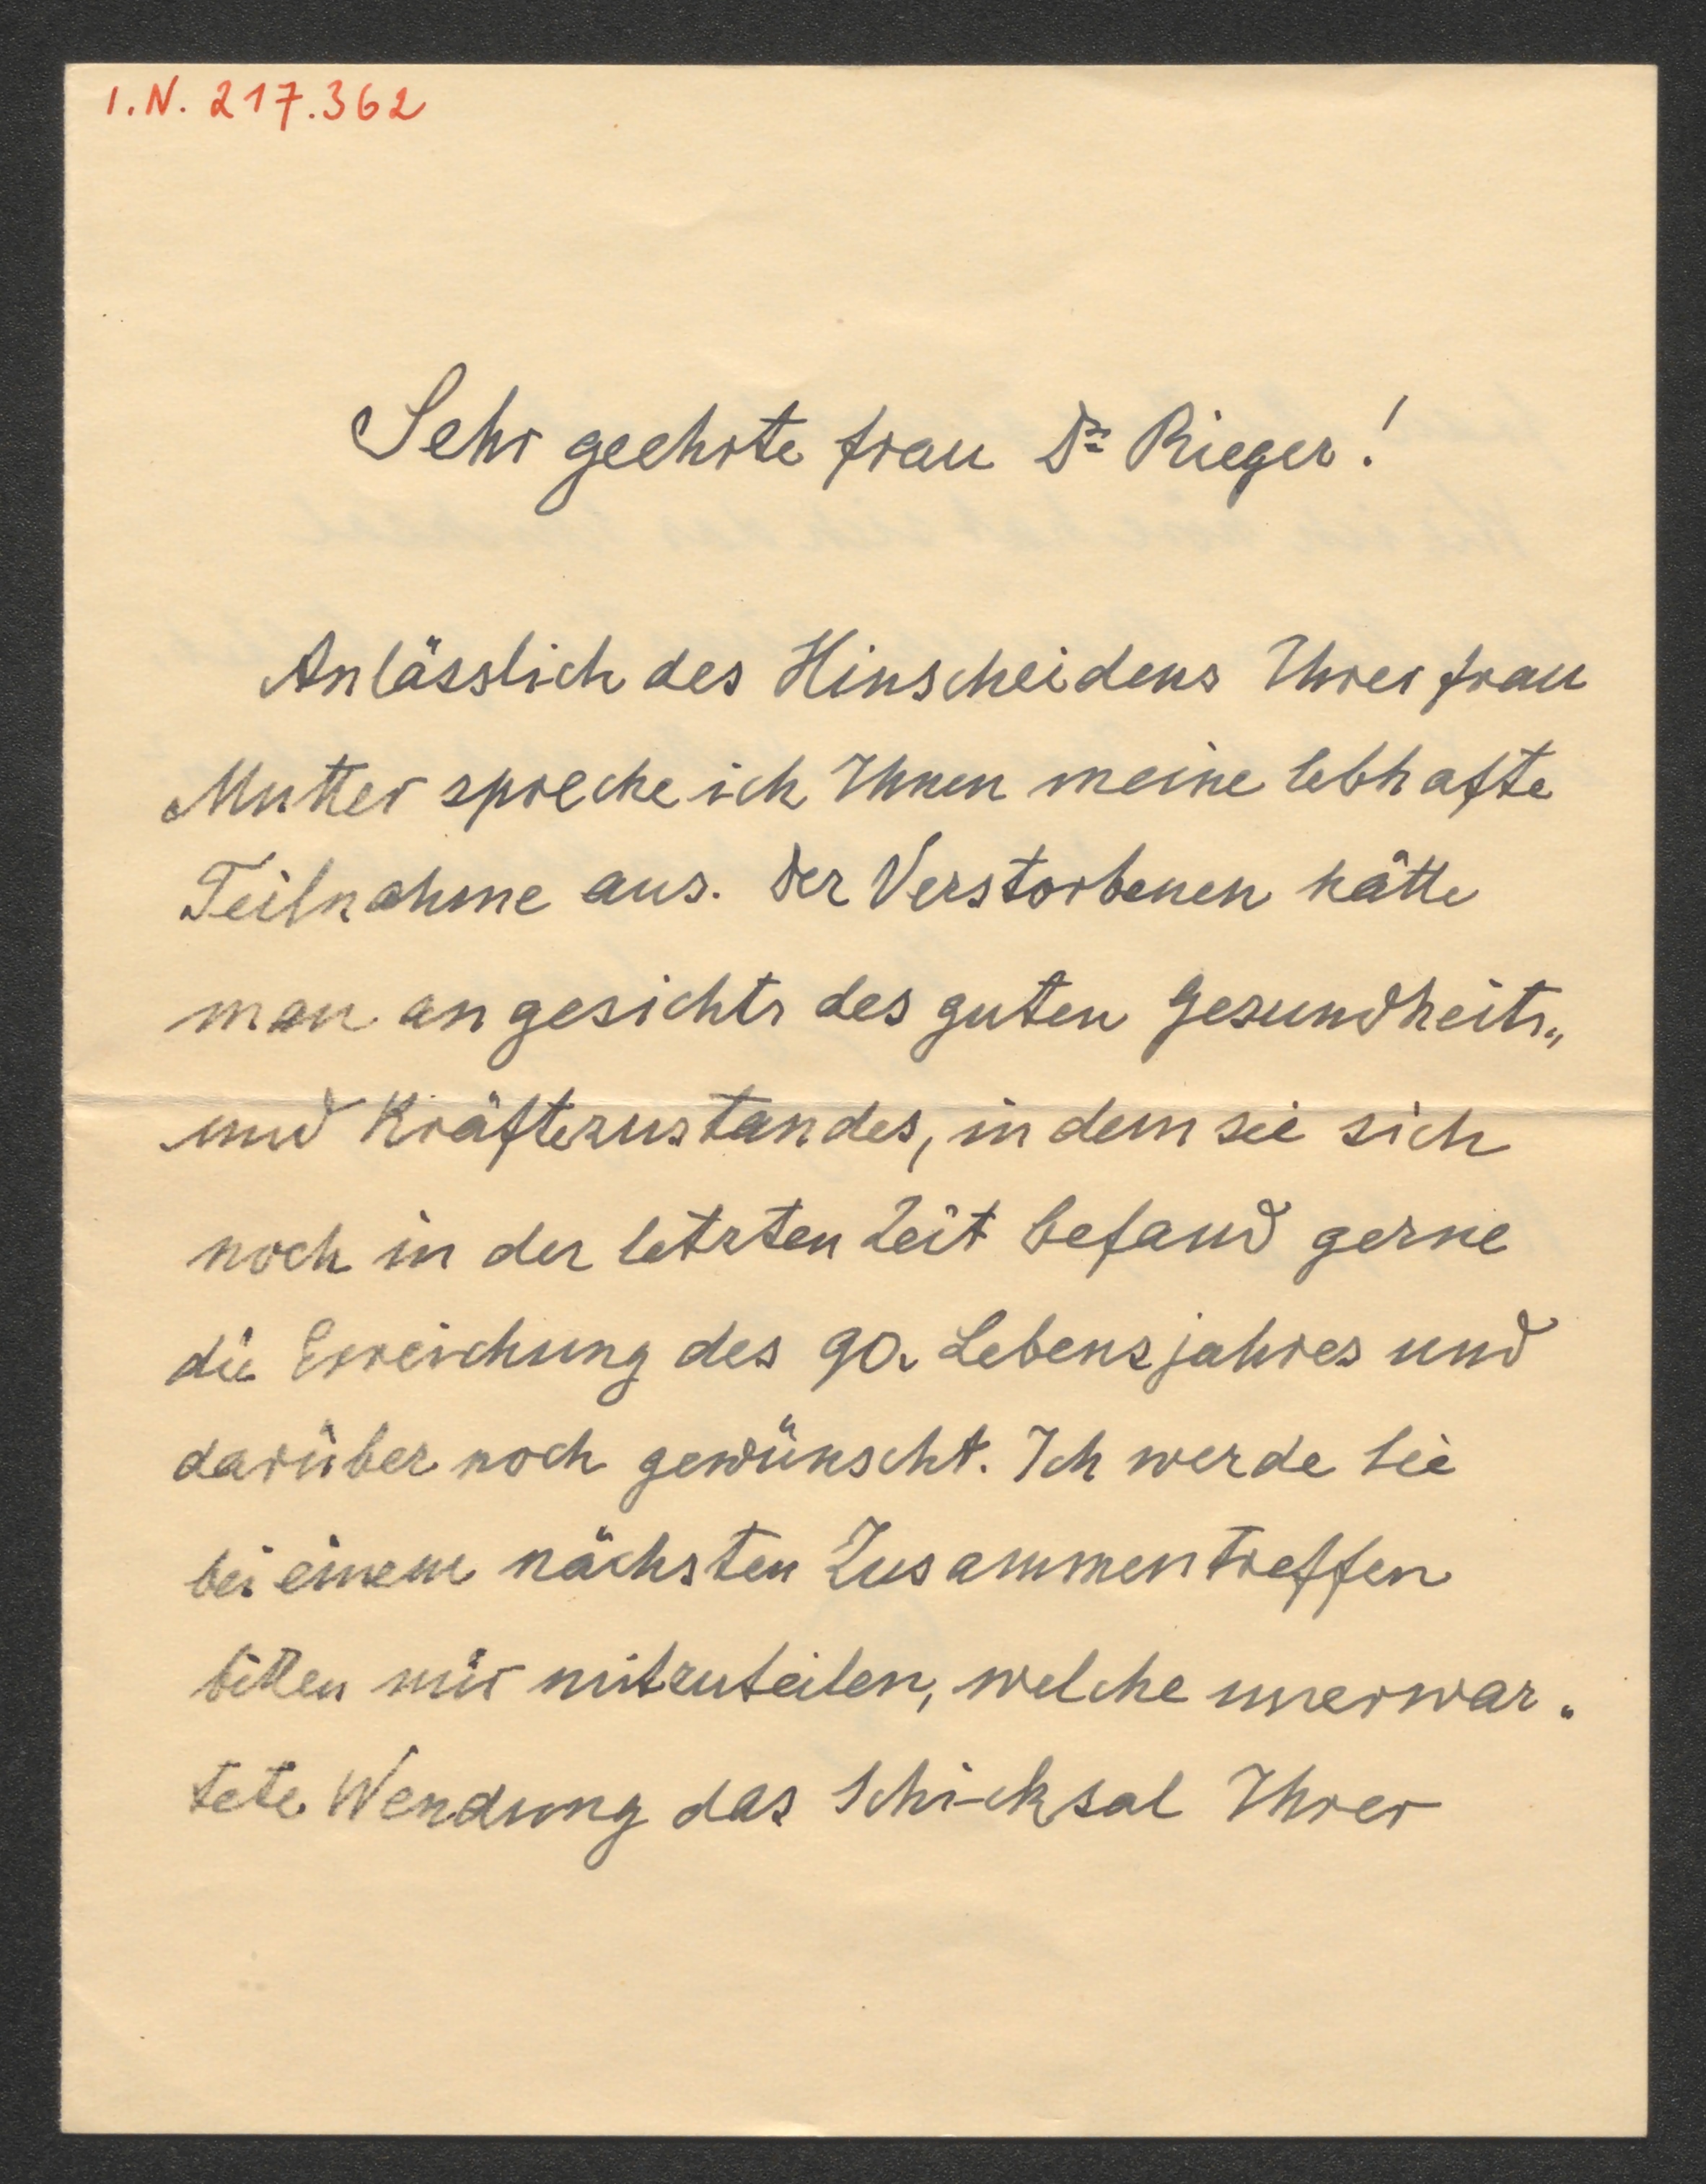 I.N. 217.362
Sehr geehrte Frau Dr Rieger!
Anlässlich des Hinscheidens Ihrer Frau
Mutter spreche ich Ihnen meine lebhafte
Teilnahme aus. Der Verstorbenen hätte
man angesichts des guten Gesundheits„
und Kräftezustandes, in dem sie sich
noch in der letzten Zeit befand gerne
die Erreichung des 90. Lebensjahres und
darüber noch gewünscht. Ich werde Sie
bei einem nächsten Zusammentreffen
bitten mir mitzuteilen, welche unerwar„
tete Wendung das Schicksal Ihrer